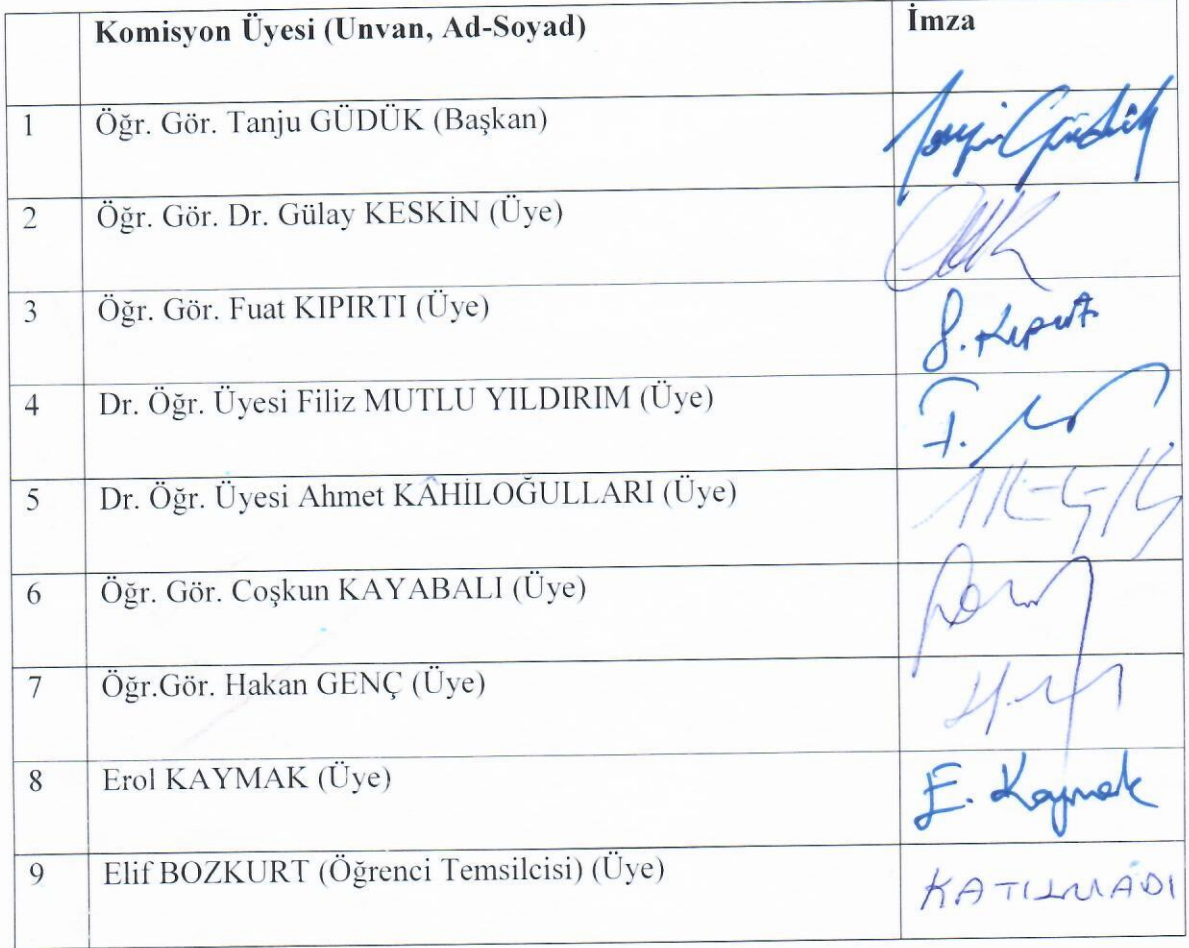 Komisyon Üyesi (Unvan, Ad-Soyad) İmza
1 Öğr. Gör. Tanju GÜDÜK (Başkan)
2 Öğr. Gör. Dr. Gülay KESKİN (Üye)
3 Öğr. Gör. Fuat KIPIRTI (Üye)
4 Dr. Öğr. Üyesi Filiz MUTLU YILDIRIM (Üye)
5 Dr. Öğr. Üyesi Ahmet KÂHİLOĞULLARI (Üye)
6 Öğr. Gör. Coşkun KAYABALI (Üye)
7 Öğr.Gör. Hakan GENÇ (Üye)
8 Erol KAYMAK (Üye) E. Kaymak
9 Elif BOZKURT (Öğrenci Temsilcisi) (Üye) KATILMADI